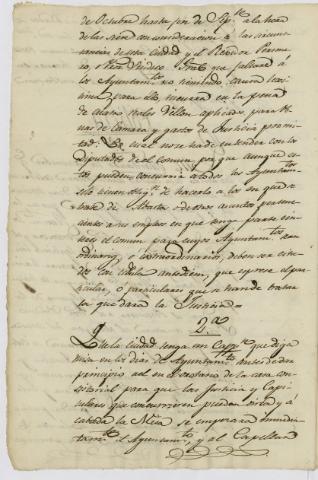 de Octubre hasta fin de Sp.re a la hora
de las nueve en consideracion a las circuns
tancias de esta ciudad y el Rexidor Perpetu
o o Sindico que faltare á
los Ayuntam.tos no teniendo causa legi
tima para ello incurra en la pena
de quatro reales Vellon aplicados para Pe
nas de Camara y gastos de Justicia por mi
tad: Lo cual no se ha de entender con los
Diputados de el comun por que aunque es
tos pueden concurrir a todos los Ayuntam.tos
solo tienen oblig.n de hacerlo a los en que se
trate de Abastos o de otros asuntos pertene
cientes a su empleo en que tenga parte e in
teres el comun para cuyos Ayuntam.tos or
dinarios, o extraordinarios, deben ser cita
dos con cedula antediem, que exprese el par
ticular, o particulares que se han de tratar
lo que dará la Justicia =
2.a
Que la ciudad tenga un Capp.n que diga
misa en los dias de Ayuntam.to antes de dar
principio a él en el oratorio de la casa con
sistorial para que la Justicia y Capi
tulares que concurrieren puedan oirla y á
cabada la Misa se empezara inmedia
tam.te el Ayuntam.to, y el Capellan